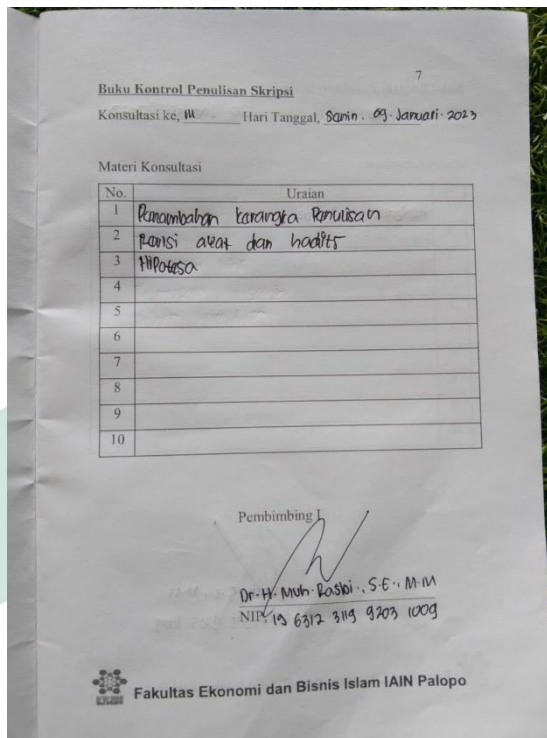 7
Buku Kontrol Penulisan Skripsi
Konsultasi ke, III Hari Tanggal, Senin . 09 . Januari . 2023
Materi Konsultasi
No. Uraian
1 Penambahan kerangka Penulisan
2 Revisi ayat dan hadits
3 Hipotesa
4
5
6
7
8
9
10
Pembimbing I
Dr. H. Muh. Rasbi., S.E., M.M
NIP. 19 6312 3119 9203 1009
Fakultas Ekonomi dan Bisnis Islam IAIN Palopo